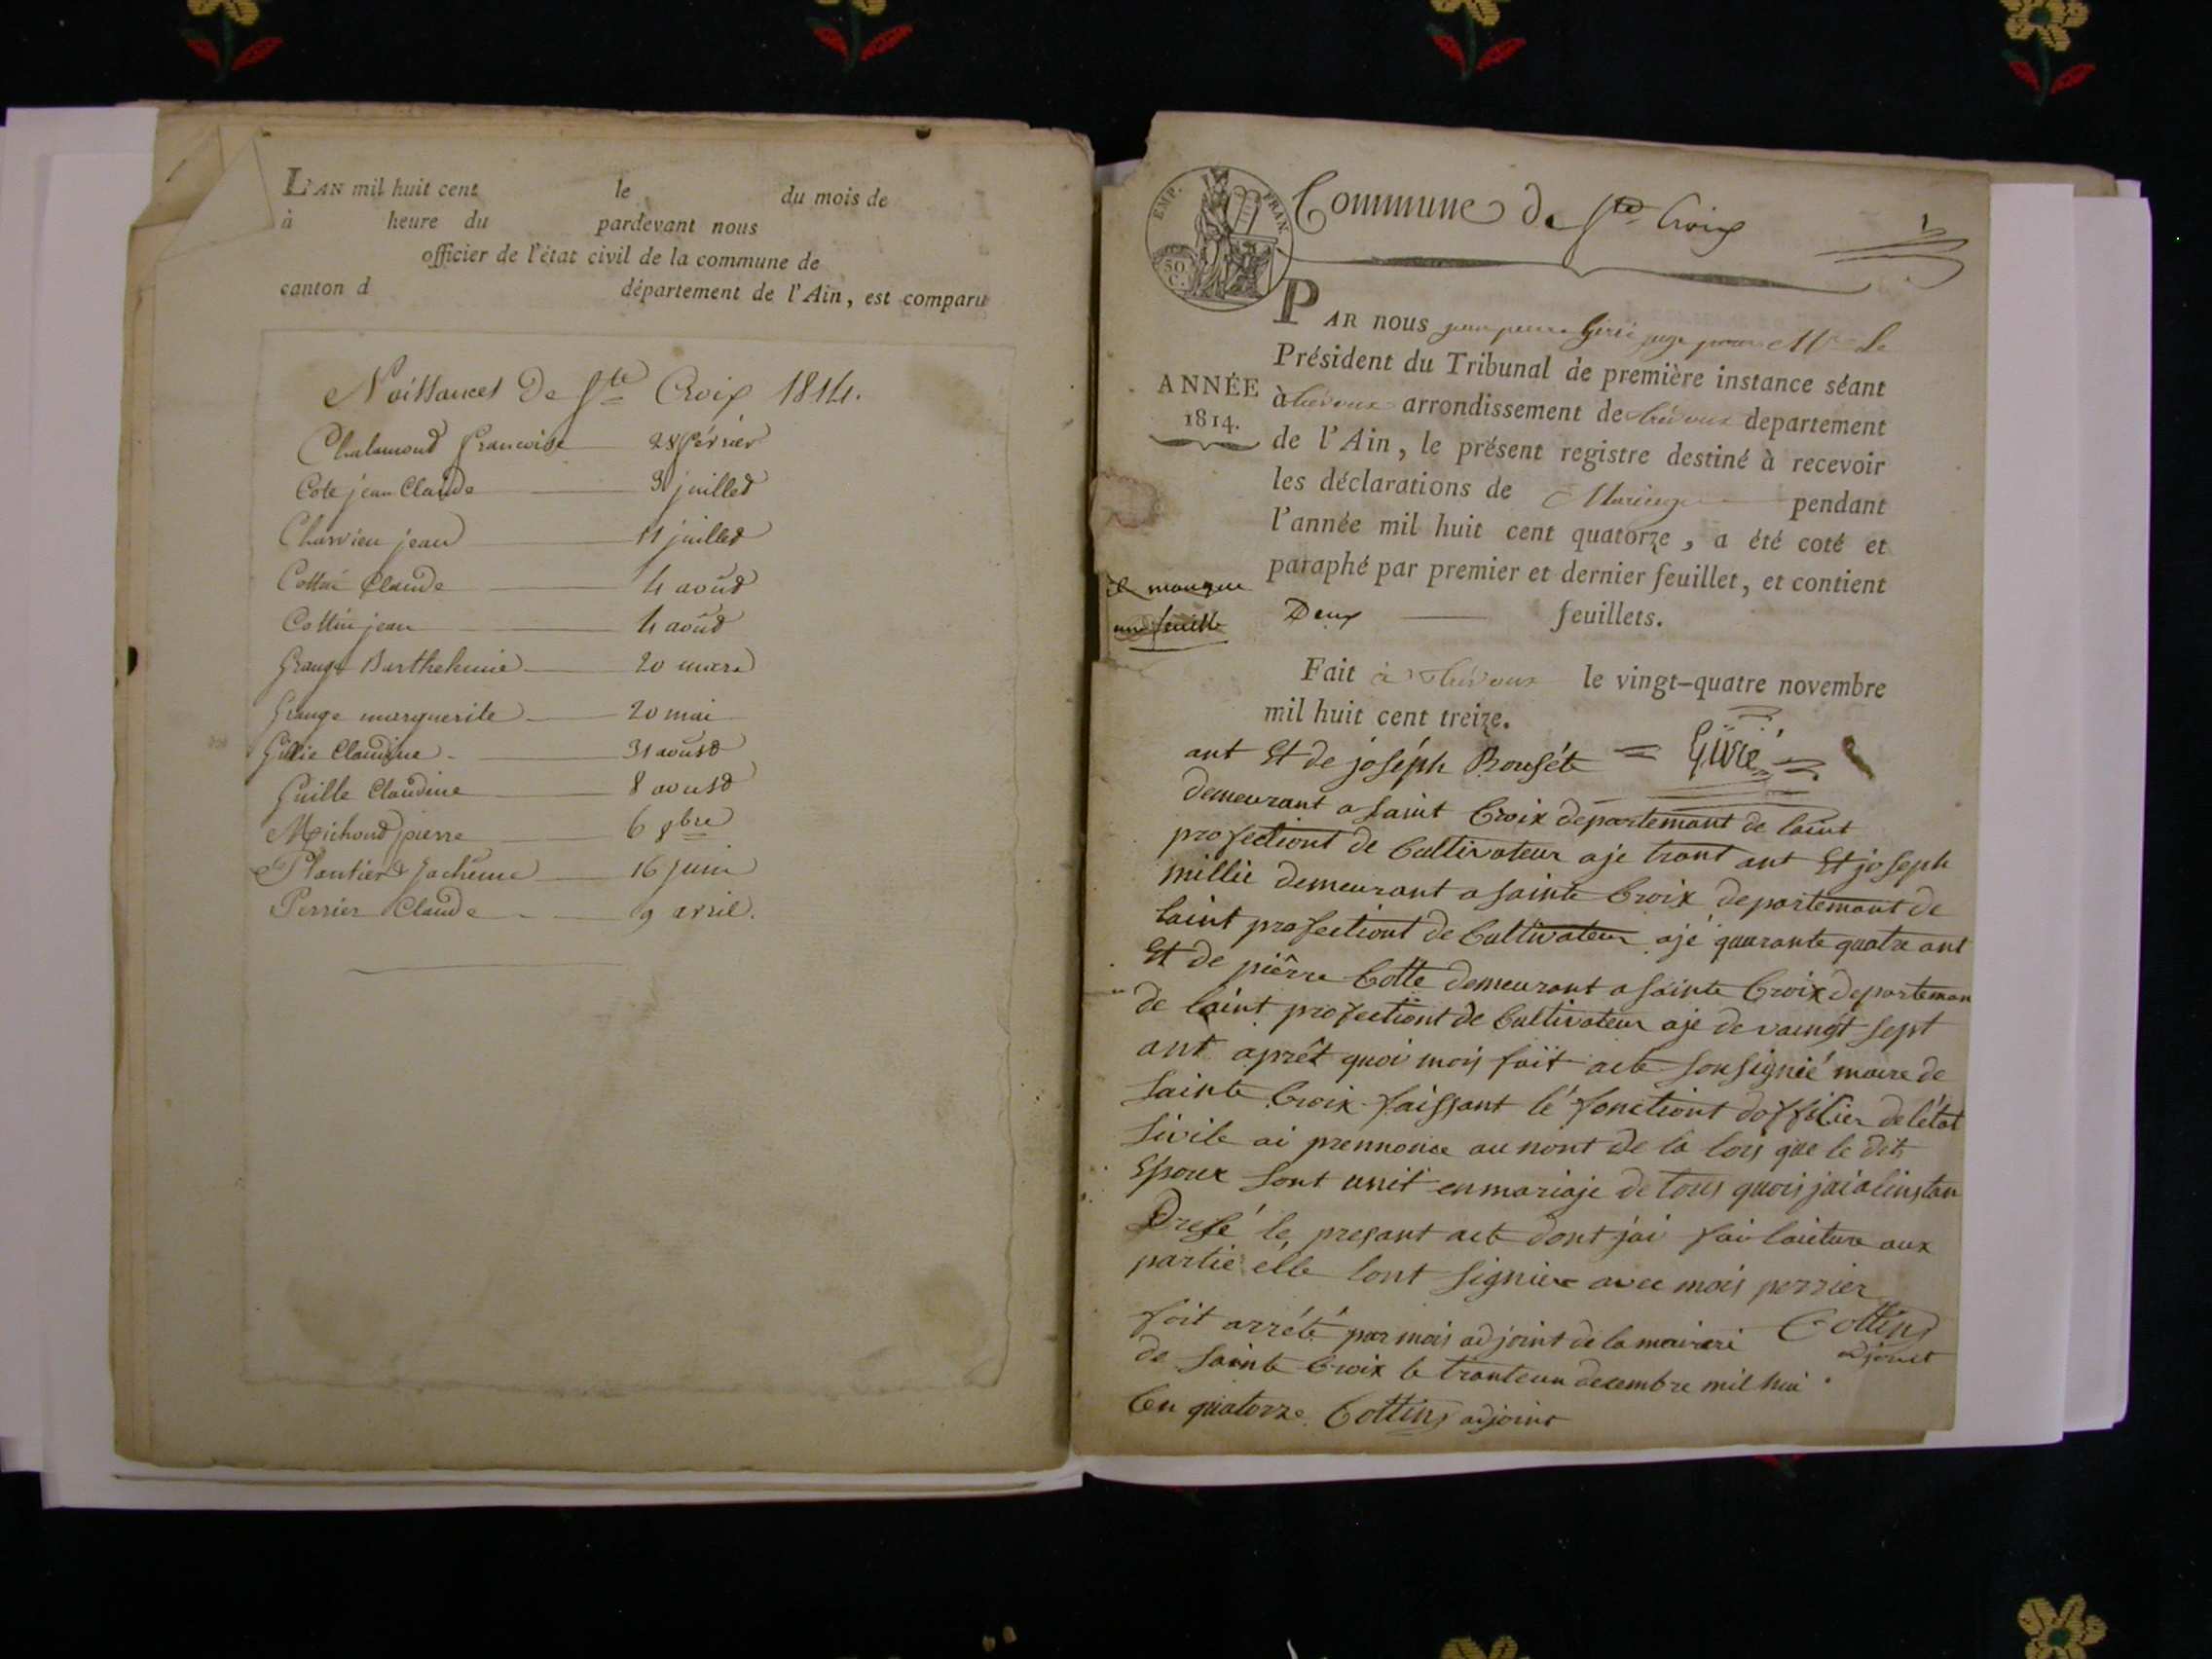 L'AN mil huit cent le du mois de
à heure du pardevant nous
officier de l'état civil de la commune de
canton d département de l'Ain, est comparu
Naissances De Ste Croix 1814.
Chalamond Francoise 28 février
Cote jean Claude 3 juilled
Charvieu jean 11 juilled
Cottin Claude 4 aoud
Cottin jean 4 aoud
Grange Barthelemie 20 mars
Grange marguerite 20 mai
Claudine 31 aousd
Guille Claudine 8 aousd
Michoud pierre 6 8bre
Plantier 16 juin
Perrier Claude 9 avril.
EMP. FRAN.
50 C.
Commune de Ste Croix
1
PAR nous jean pierre juge pour Mr Le
Président du Tribunal de première instance séant
ANNÉE
1814.
à trévoux arrondissement de trévoux departement
de l'Ain, le présent registre destiné à recevoir
les déclarations de Mariage pendant
l'année mil huit cent quatorze, a été coté et
paraphé par premier et dernier feuillet, et contient
Deux feuillets.
il manque
une feuille
Fait à Trévoux le vingt-quatre novembre
mil huit cent treize.
ant Et de joséph Bouséte
demeurant a saint Croix departemant de laint
profectiont de Cultivateur aje trant ant Et joseph
millie demeurant a sainte Croix departemant de
laint profectiont de Cultivateur ajé quarante quatre ant
Et de piêrre Cotte demeurant a sainte Croix departeman
de laint profectiont de Cultivateur aje de vaingt sept
ant aprêt quoi mois fait acte sousignié maire de
sainte Croix faissant lé fonctiont doffitier de létat
sivile ai prennonse au nont de la lois que le dit
Epoux sont unit en mariaje de tous quois jai a linstan
Dresé le presant acte dont jai fai laicture aux
partie elle lont signier avec mois perrier
Cottin
adjouet
foit arrété par mois adjoint de la maireri
de sainte Croix le tranteun desembre mil hui
Cen quatorze. Cottin adjoint